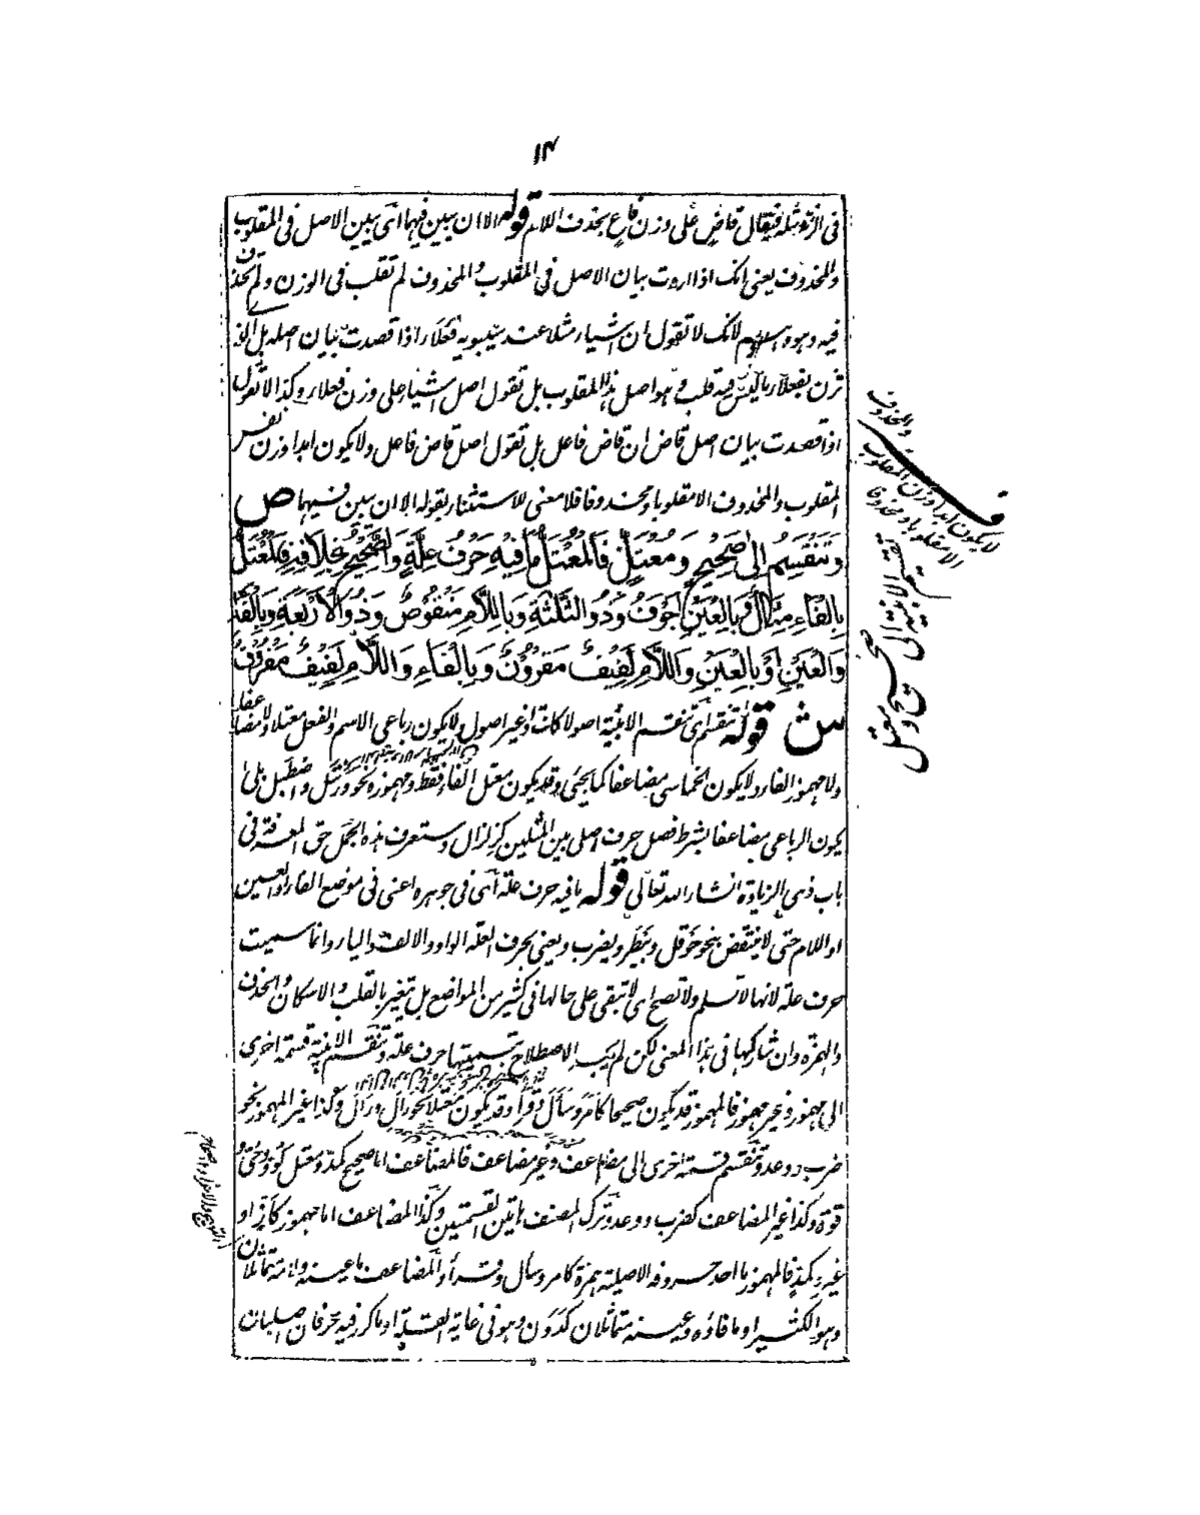 ١٤
فى الزنة مثله فيقال قاض على وزن فاع بحذف اللام قوله الا ان يبين فيهما اى يبين الاصل فى المقلوب
والمحذوف يعنى انك اذا اردت بيان الاصل فى المقلوب والمحذوف لم تقلب فى الوزن ولم تحذف
فيه وهو لانك لا تقول ان اشياء مثلا عند سيبويه فعلاء اذا قصدت بيان اصله بل
تزن بفعلاء ما ليس فيه قلب وهو اصل هذا المقلوب بل تقول اصل اشياء على وزن فعلاء وكذا لا تقول
اذا قصدت بيان اصل قاض ان قاض فاعل بل تقول اصل قاض فاعل ولا يكون ابدا وزن نفس
المقلوب والمحذوف الا مقلوبا ومحذوفا فلا معنى للاستثناء بقوله الا ان يبين فيهما ص
وَتَنْقَسِمُ إِلَى صَحِيحٍ وَمُعْتَلٍّ فَالْمُعْتَلُّ مَا فِيهِ حَرْفُ عِلَّةٍ وَالصَّحِيحُ بِخِلَافِهِ فَالْمُعْتَلُّ
بِالْفَاءِ مِثَالٌ وَبِالْعَيْنِ أَجْوَفُ وَذُو الثَّلٰثَةِ وَبِاللَّامِ مَنْقُوصٌ وَذُو الْأَرْبَعَةِ وَبِالْفَاءِ
وَالْعَيْنِ أَوْ بِالْعَيْنِ وَاللَّامِ لَفِيفٌ مَقْرُونٌ وَبِالْفَاءِ وَاللَّامِ لَفِيفٌ مَفْرُوقٌ
ش قوله وتنقسم اى تنقسم الابنية اصولا كانت او غير اصول ولا يكون رباعى الاسم والفعل معتلا ولا مضاعفا
ولا مهموز الفاء ولا يكون الخماسى مضاعفا كما يجئ وقد يكون معتل الفاء فقط ومهموزه نحو ورنتل واصطبل بلى
يكون الرباعى مضاعفا بشرط فصل حرف اصلى بين المثلين كزلزال وستعرف هذه الجمل حق المعرفة فى
باب ذى الزيادة انشاء الله تعالى قوله ما فيه حرف علة اى فى جوهره اعنى فى موضع الفاء او العين
او اللام حتى لا ينتقض بنحو حوقل وبيطر ويضرب ويعنى بحرف العلة الواو والالف والياء وانما سميت
حرف علة لانها لا تسلم ولا تصح اى لا تبقى على حالها فى كثير من المواضع بل تتغير بالقلب والاسكان والحذف
والهمزة وان شاركها فى هذا المعنى لكن لم يجر الاصطلاح بتسميتها حرف علة وتنقسم الابنية قسمة اخرى
الى مهموز وغير مهموز فالمهموز قد يكون صحيحا كامر وسأل وقرأ وقد يكون معتلا نحو آل ووأل وكذا غير المهموز نحو
ضرب ووعد وتنقسم قسمة اخرى الى مضاعف وغير مضاعف فالمضاعف اما صحيح كمد او معتل كود وحى و
قوة وكذا غير المضاعف كضرب ووعد وترك المصنف هاتين القسمتين وكذا المضاعف اما مهموز كاز او
غيره كمد فالمهموز ما احد حروفه الاصلية همزة كامر وسأل وقرأ والمضاعف ما عينه ولامه متماثلان
وهو الكثير او ما فاؤه وعينه متماثلان كددن وهو فى غاية القلة او ما كرر فيه حرفان اصليان
والمحذوف
لا يكون ابدا وزن المقلوب
الا مقلوبا ومحذوفا
تقسيم الابنية الى
صحيح ومعتل